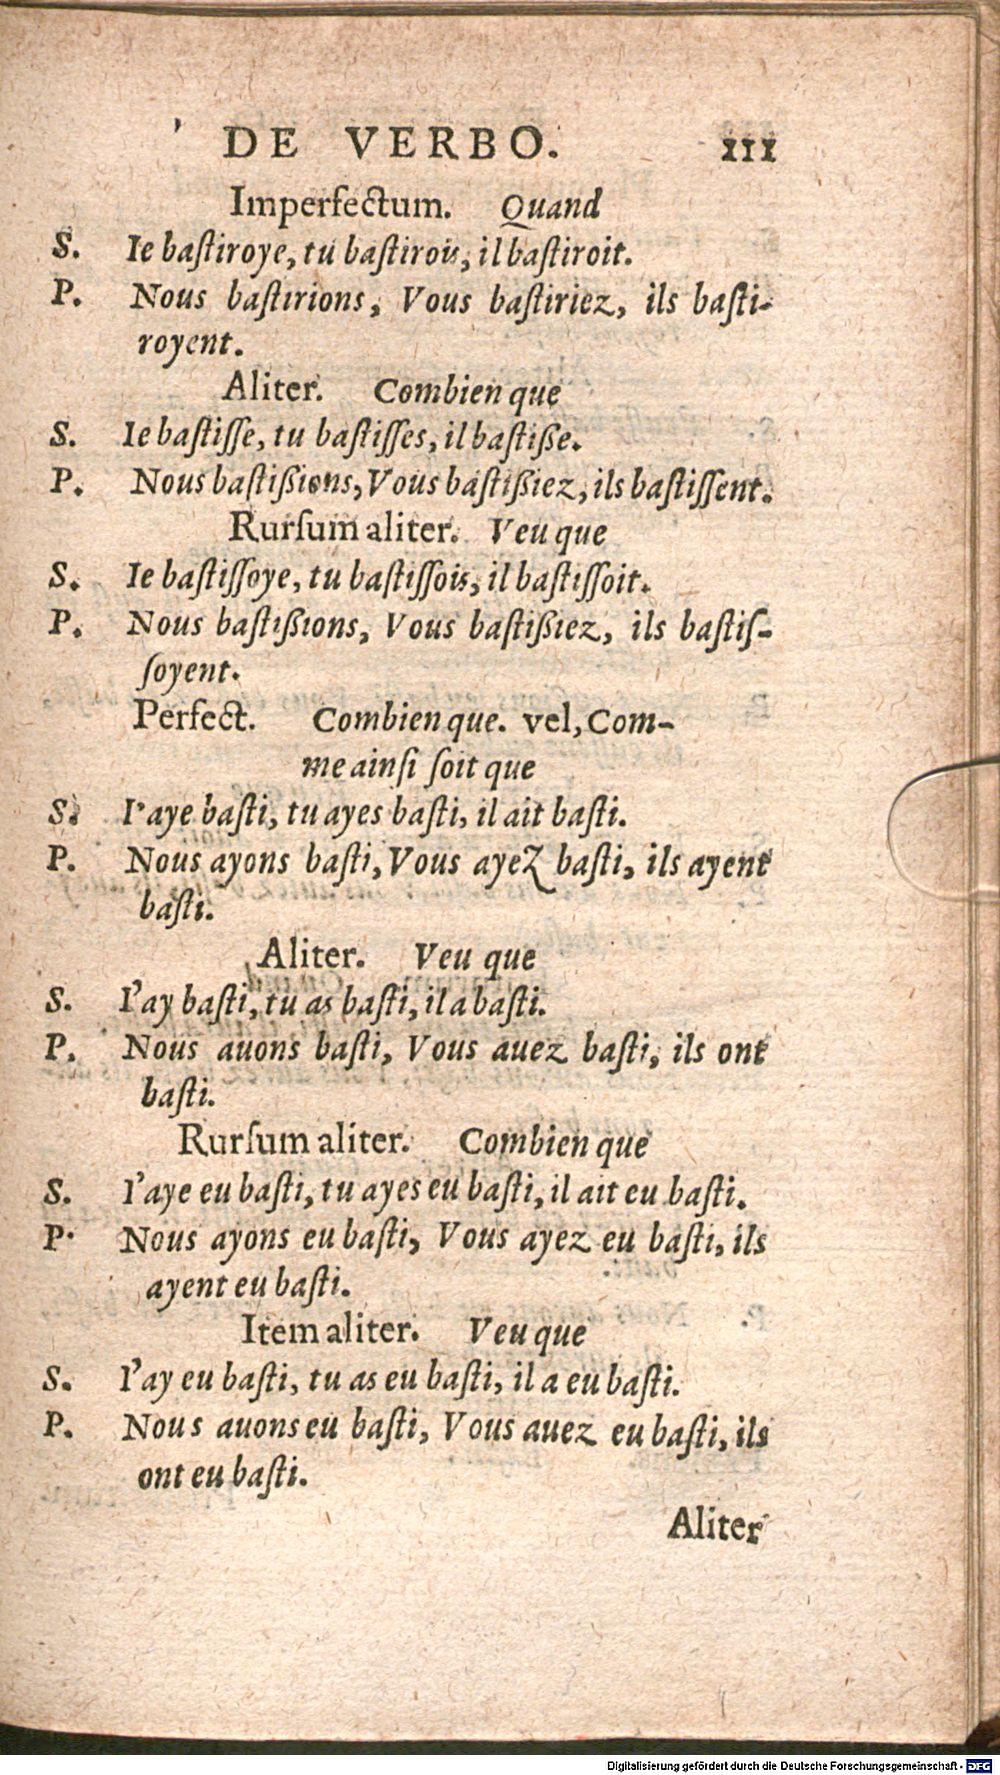 DE VERBO. 111
Imperfectum. Quand
S. Ie baſtiroye, tu baſtirois, il baſtiroit.
P. Nous baſtirions, Vous baſtiriez, ils baſti-
royent.
Aliter. Combien que
S. Ie baſtiſſe, tu baſtiſſes, il baſtiße.
P. Nous baſtißions, Vous baſtißiez, ils baſtiſſent.
Rurſum aliter. Veu que
S. Ie baſtiſſoye, tu baſtiſſois, il baſtiſſoit.
P. Nous baſtißions, Vous baſtißiez, ils baſtiſ-
ſoyent.
Perfect. Combien que. vel, Com-
me ainſi ſoit que
S. I'aye baſti, tu ayes baſti, il ait baſti.
P. Nous ayons baſti, Vous ayez baſti, ils ayent
baſti.
Aliter. Veu que
S. I'ay baſti, tu as baſti, il a baſti.
P. Nous auons baſti, Vous auez baſti, ils ont
baſti.
Rurſum aliter. Combien que
S. I'aye eu baſti, tu ayes eu baſti, il ait eu baſti.
P. Nous ayons eu baſti, Vous ayez eu baſti, ils
ayent eu baſti.
Item aliter. Veu que
S. I'ay eu baſti, tu as eu baſti, il a eu baſti.
P. Nous auons eu baſti, Vous auez eu baſti, ils
ont eu baſti.
Aliter
Digitalisierung gefördert durch die Deutsche Forschungsgemeinschaft - DFG